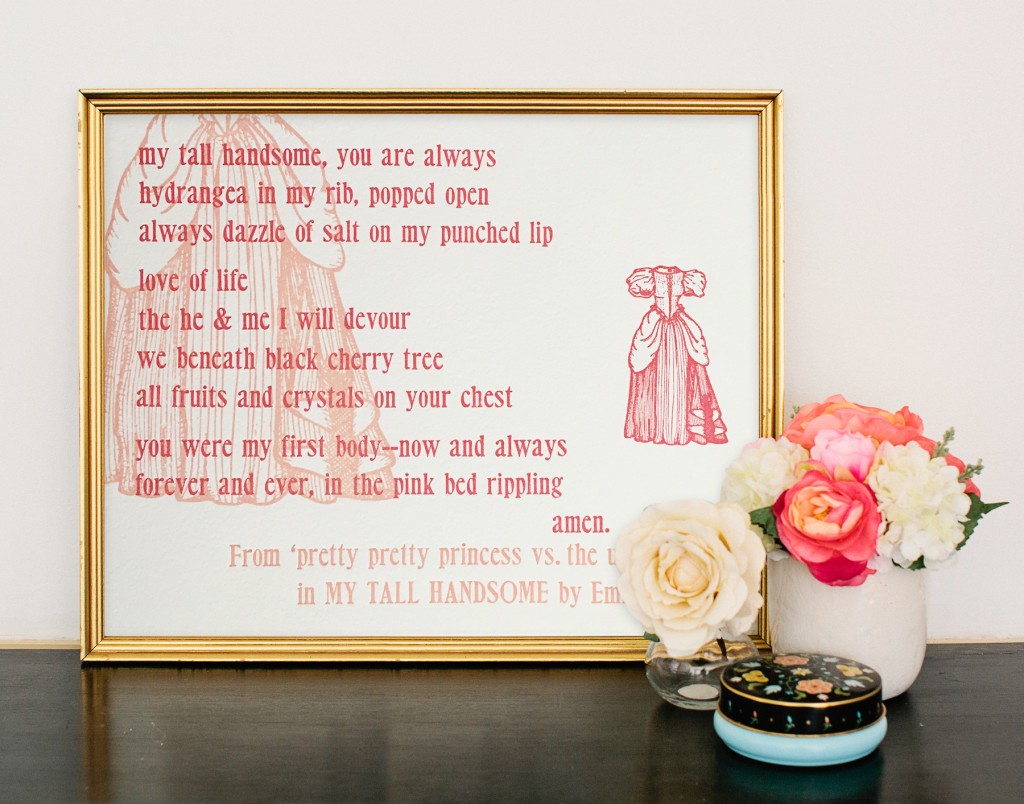 my tall handsome, you are always
hydrangea in my rib, popped open
always dazzle of salt on my punched lip
love of life
the he & me I will devour
we beneath black cherry tree
all fruits and crystals on your chest
you were my first body--now and always
forever and ever, in the pink bed rippling
amen.
From ‘pretty pretty princess vs. the
in MY TALL HANDSOME by